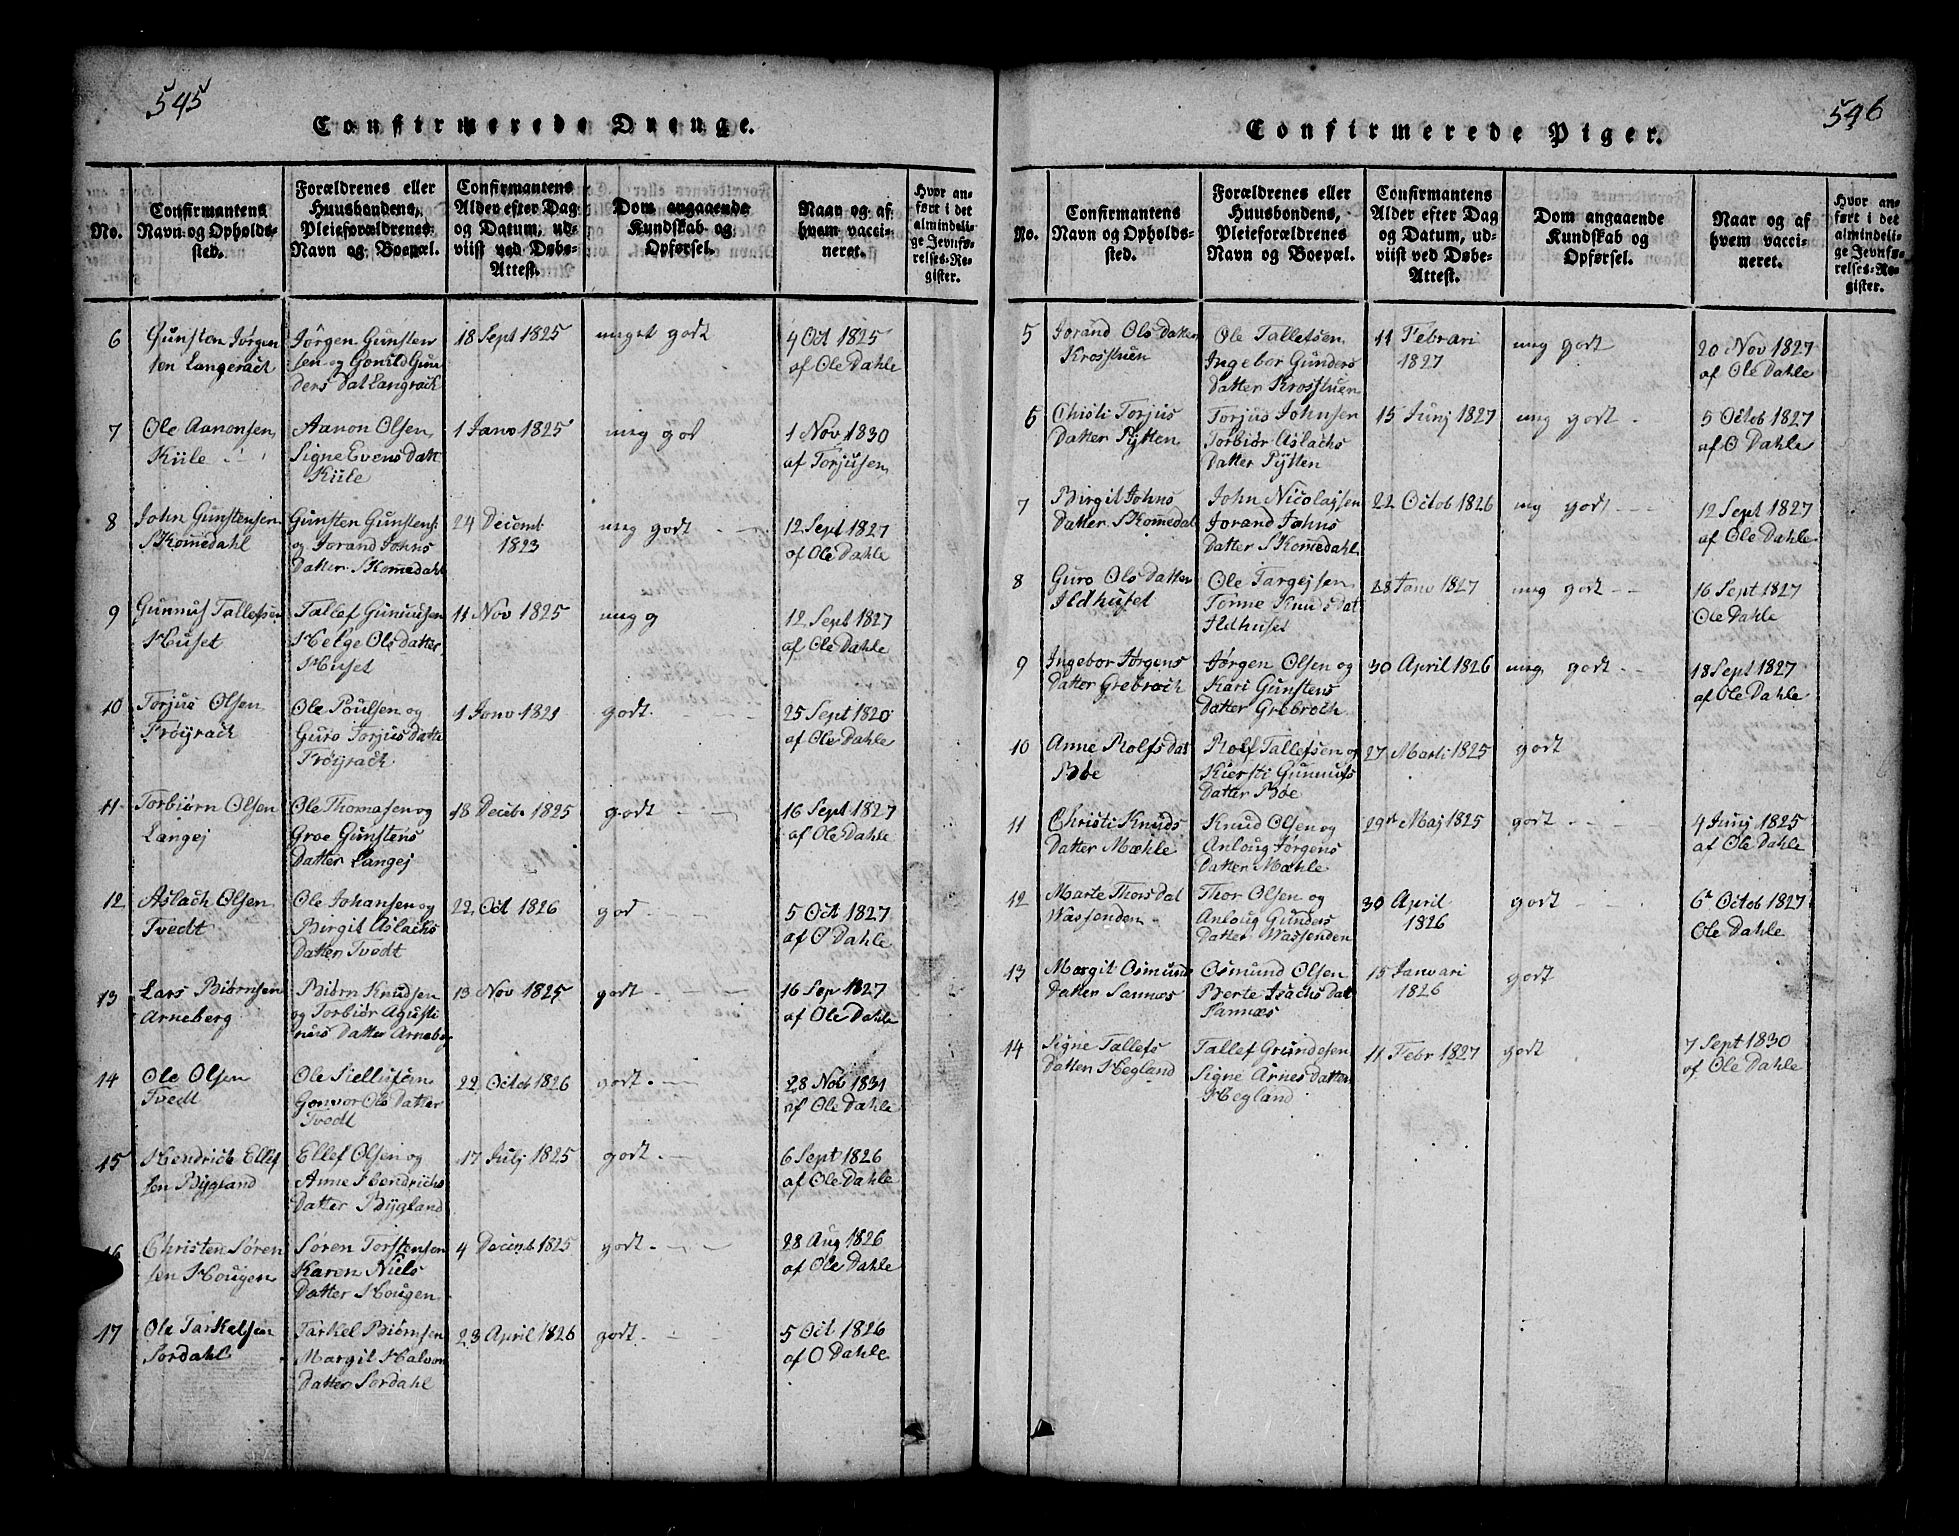 545
Confirmerede Drenge.
No.
Confirmantens
Navn og Opholds-
sted.
Forældrenes eller
Huusbondens,
Pleieforældrenes
Navn og Boepæl.
Confirmantens
Alder efter Dag
og Datum, ud-
viist ved Døbe-
Attest.
Dom angaaende
Kundskab og
Opførsel.
Naar og af
hvem vacci-
neret.
Hvor an-
ført i det
almindeli-
ge Jevnfø-
relses-Re-
gister.
6
Gunsten Jørgen
sen Langerach
Jørgen Gunsten
sen og Gonild Gun
ders Dat Langrach
18 Sept 1825
meget godt
4 Oct 1825
af Ole Dahle
7
Ole Aanonsen
Kiile
Aanon Olsen
Signe Evens Datt
Kiile
1 Janv 1825
meg god
1 Nov 1830
af Torjusen
8
John Gunstensen
Skomedahl
Gunsten Gunstens
og Jorand Johns
Datter Skomedahl
24 Decemb
1823
meg godt
12 Sept 1827
af Ole Dahle
9
Gunnuf Tallefsen
Huset
Tallef Gunnufsen
Helge Olsdatter
Huset
11 Nov 1825
meg g
12 Sept 1827
af Ole Dahle
10
Torjus Olsen
Frøyrach
Ole Poulsen og
Guro Torjus Datte
Frøyrach
1 Janv 1821
godt
25 Sept 1820
af Ole Dahle
11
Torbiørn Olsen
Langej
Ole Thomasen og
Groe Gunstens
Datter Langej
18 Decebr 1825
godt
16 Sept 1827
af Ole Dahle
12
Aslach Olsen
Tvedt
Ole Johansen og
Birgit Aslachs
Datter Tvedt
22 Oct 1826
god
5 Oct 1827
af O Dahle
13
Lars Biørnsen
Arneberg
Biørn Knudsen
og Torbiør Agusti
nus Datter Arneberg
13 Nov 1825
godt
16 Sep 1827
af Ole Dahle
14
Ole Olsen
Tvedt
Ole Siellufsen
Gonvor Ols Datter
Tvedt
22 Octob 1826
godt
28 Nov 1831
af Ole Dahle
15
Hendrich Ellef
sen Bygland
Ellef Olsen og
Anne Hendrichs
Datter Bygland
17 Julj 1825
godt
6 Sept 1826
af Ole Dahle
16
Christen Søren
sen Hougen
Søren Torstensen
Karen Niels
Datter Hougen
4 Decemb 1825
godt
28 Aug 1826
af Ole Dahle
17
Ole Tarkelsen
Sordahl
Tarkel Biørnsen
Margit Halvor
Datter Sordahl
23 April 1826
godt
5 Oct 1826
af O Dahle
546
Confirmerede Piger.
No.
Confirmantens
Navn og Opholds-
sted.
Forældrenes eller
Huusbondens,
Pleieforældrenes
Navn og Boepæl.
Confirmantens
Alder efter Dag
og Datum, ud-
viist ved Døbe-
Attest.
Dom angaaende
Kundskab og
Opførsel.
Naar og af
hvem vacci-
neret.
Hvor an-
ført i det
almindeli-
ge Jevnfø-
relses-Re-
gister.
5
Jorand Ols Datter
Krosstuen
Ole Tallefsen
Ingebor Gunders
Datter Krosstuen
11 Febrari
1827
meg godt
20 Nov 1827
af Ole Dahle
6
Christi Torjus
Datter Pytten
Torjus Johnsen
Torbiør Aslachs
Datter Pytten
15 Junj 1827
meg godt
5 Octob 1827
af O Dahle
7
Birgit Johns
Datter Skomedal
John Nicolajsen
Jorand Johns
Datter Skomedahl
22 Octob 1826
mg godt
12 Sept 1827
af Ole Dahle
8
Guro Ols Datter
Ildhuset
Ole Targejsen
Tonne Knuds dat
Ildhuset
28 Janv 1827
meg godt
16 Sept 1827
Ole Dahle
9
Ingebor Jørgens
Datter Grebroch
Jørgen Olsen og
Kari Gunstens
Datter Grebroch
30 April 1826
meg godt
18 Sept 1827
af Ole Dahle
10
Anne Rolfs dat
Bøe
Rolf Tallefsen og
Kiersti Gunnufs
Datter Bøe
27 Marti 1825
godt
11
Christi Knuds
Datter Mæhle
Knud Olsen og
Anloug Jørgens
Datter Mæhle
29de Maj 1825
godt
4 Junj 1825
af Ole Dahle
12
Marte Thorsdat
Wassenden
Thor Olsen og
Anloug Gunders
Datter Wassenden
30 April
1826
godt
6 Octob 1827
Ole Dahle
13
Margit Osmunds
Datter Sannæs
Osmund Olsen
Berte Isachs Dat
Sannæs
15 Janvari
1826
godt
14
Signe Tallefs
Datter Hegland
Tallef Grundesen
Signe Arnes datter
Hegland
11 Febr 1827
godt
7 Sept 1830
af Ole Dahle